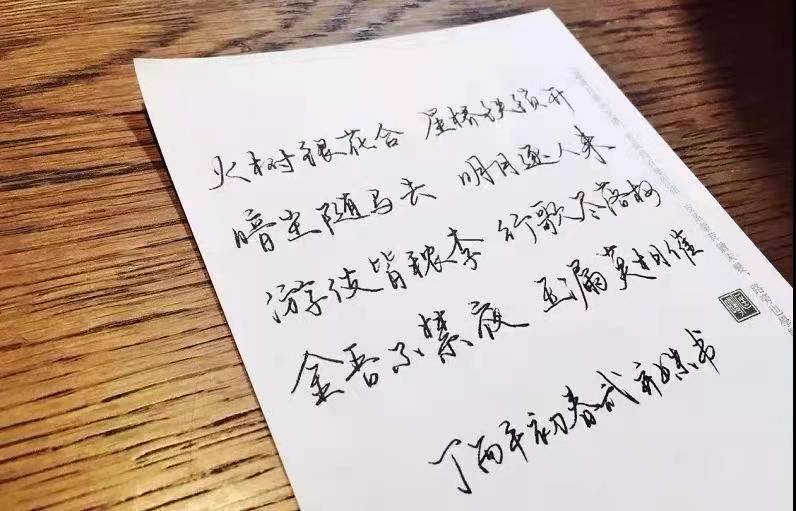 火树银花合 星桥铁锁开
暗尘随马去 明月逐人来
游伎皆秾李 行歌尽落梅
金吾不禁夜 玉漏莫相催
丁酉年初春